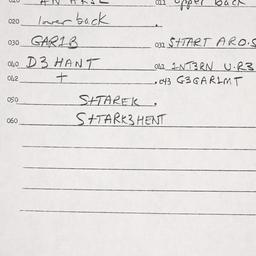 020 lower back
030 GAR1B 031 S+TART ARO.S
040 D3 HANT 041 1NT3RN U.R3
042 + .043 G3GAR1MT
050 S+TAREK.
060 S+TARK3HENT